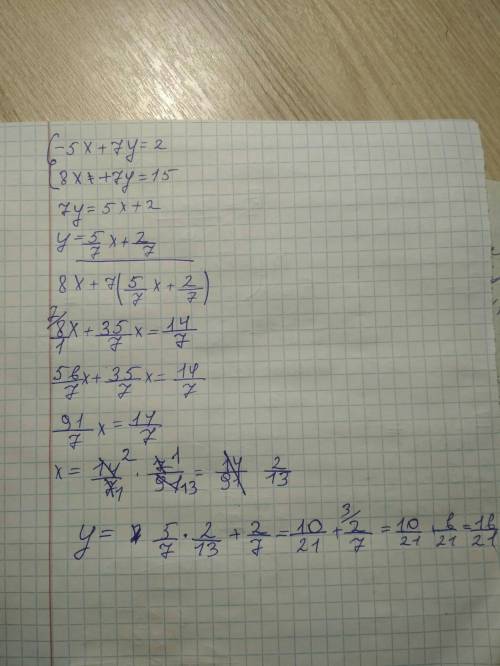 {-5x+7y=2
8x+7y=15
7y=5x+2
y=5/7x+2/7
8x+7(5/7x+2/7)
7/ 8/1x+35/7x=14/7
56/7x+35/7x=14/7
91/7x=14/7
x=14/7 2 1·7/91 1 13=14/91 2/13
y= 5/7·2/13+2/7=10/21+3/ 2/7=10/21 6/21=16/21